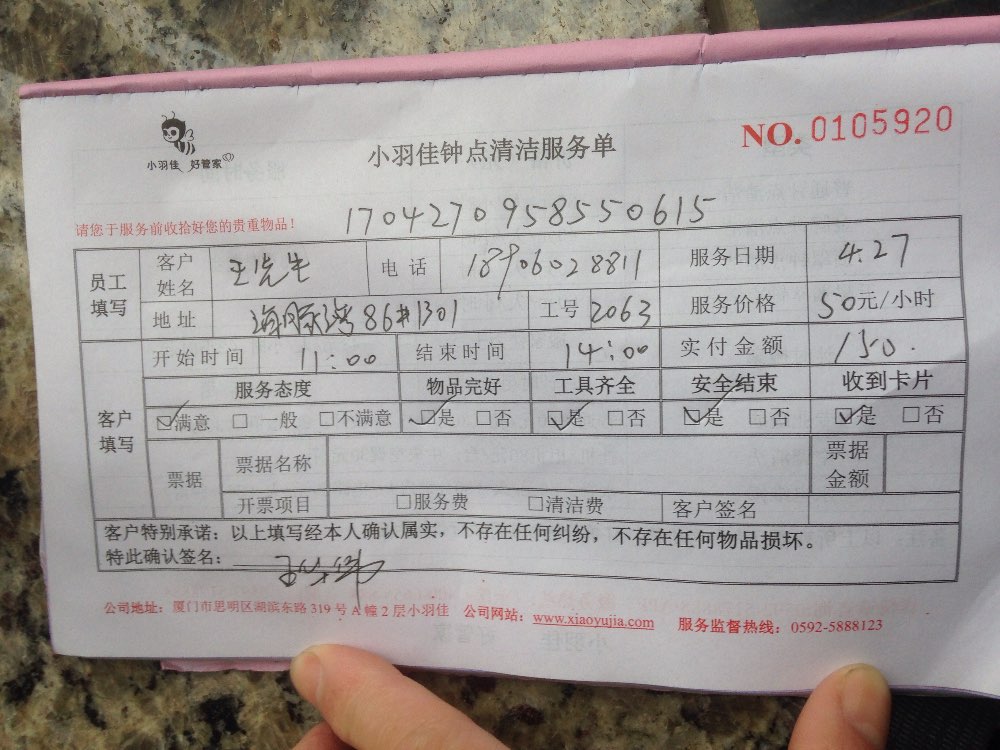 小羽佳 好管家
小羽佳钟点清洁服务单
NO. 0105920
请您于服务前收拾好您的贵重物品！
170427095855061​5
员工填写 客户姓名 王先生 电话 18906028811 服务日期 4.27
地址 86#1301 工号 2063 服务价格 50元/小时
客户填写 开始时间 11:00 结束时间 14:00 实付金额 150.
服务态度 物品完好 工具齐全 安全结束 收到卡片
☑满意 □一般 □不满意 ☑是 □否 ☑是 □否 ☑是 □否 ☑是 □否
票据 票据名称 票据金额
开票项目 □服务费 □清洁费 客户签名
客户特别承诺：以上填写经本人确认属实，不存在任何纠纷，不存在任何物品损坏。
特此确认签名：
公司地址：厦门市思明区湖滨东路 319 号 A 幢 2 层小羽佳 公司网站：www.xiaoyujia.com 服务监督热线：0592-5888123